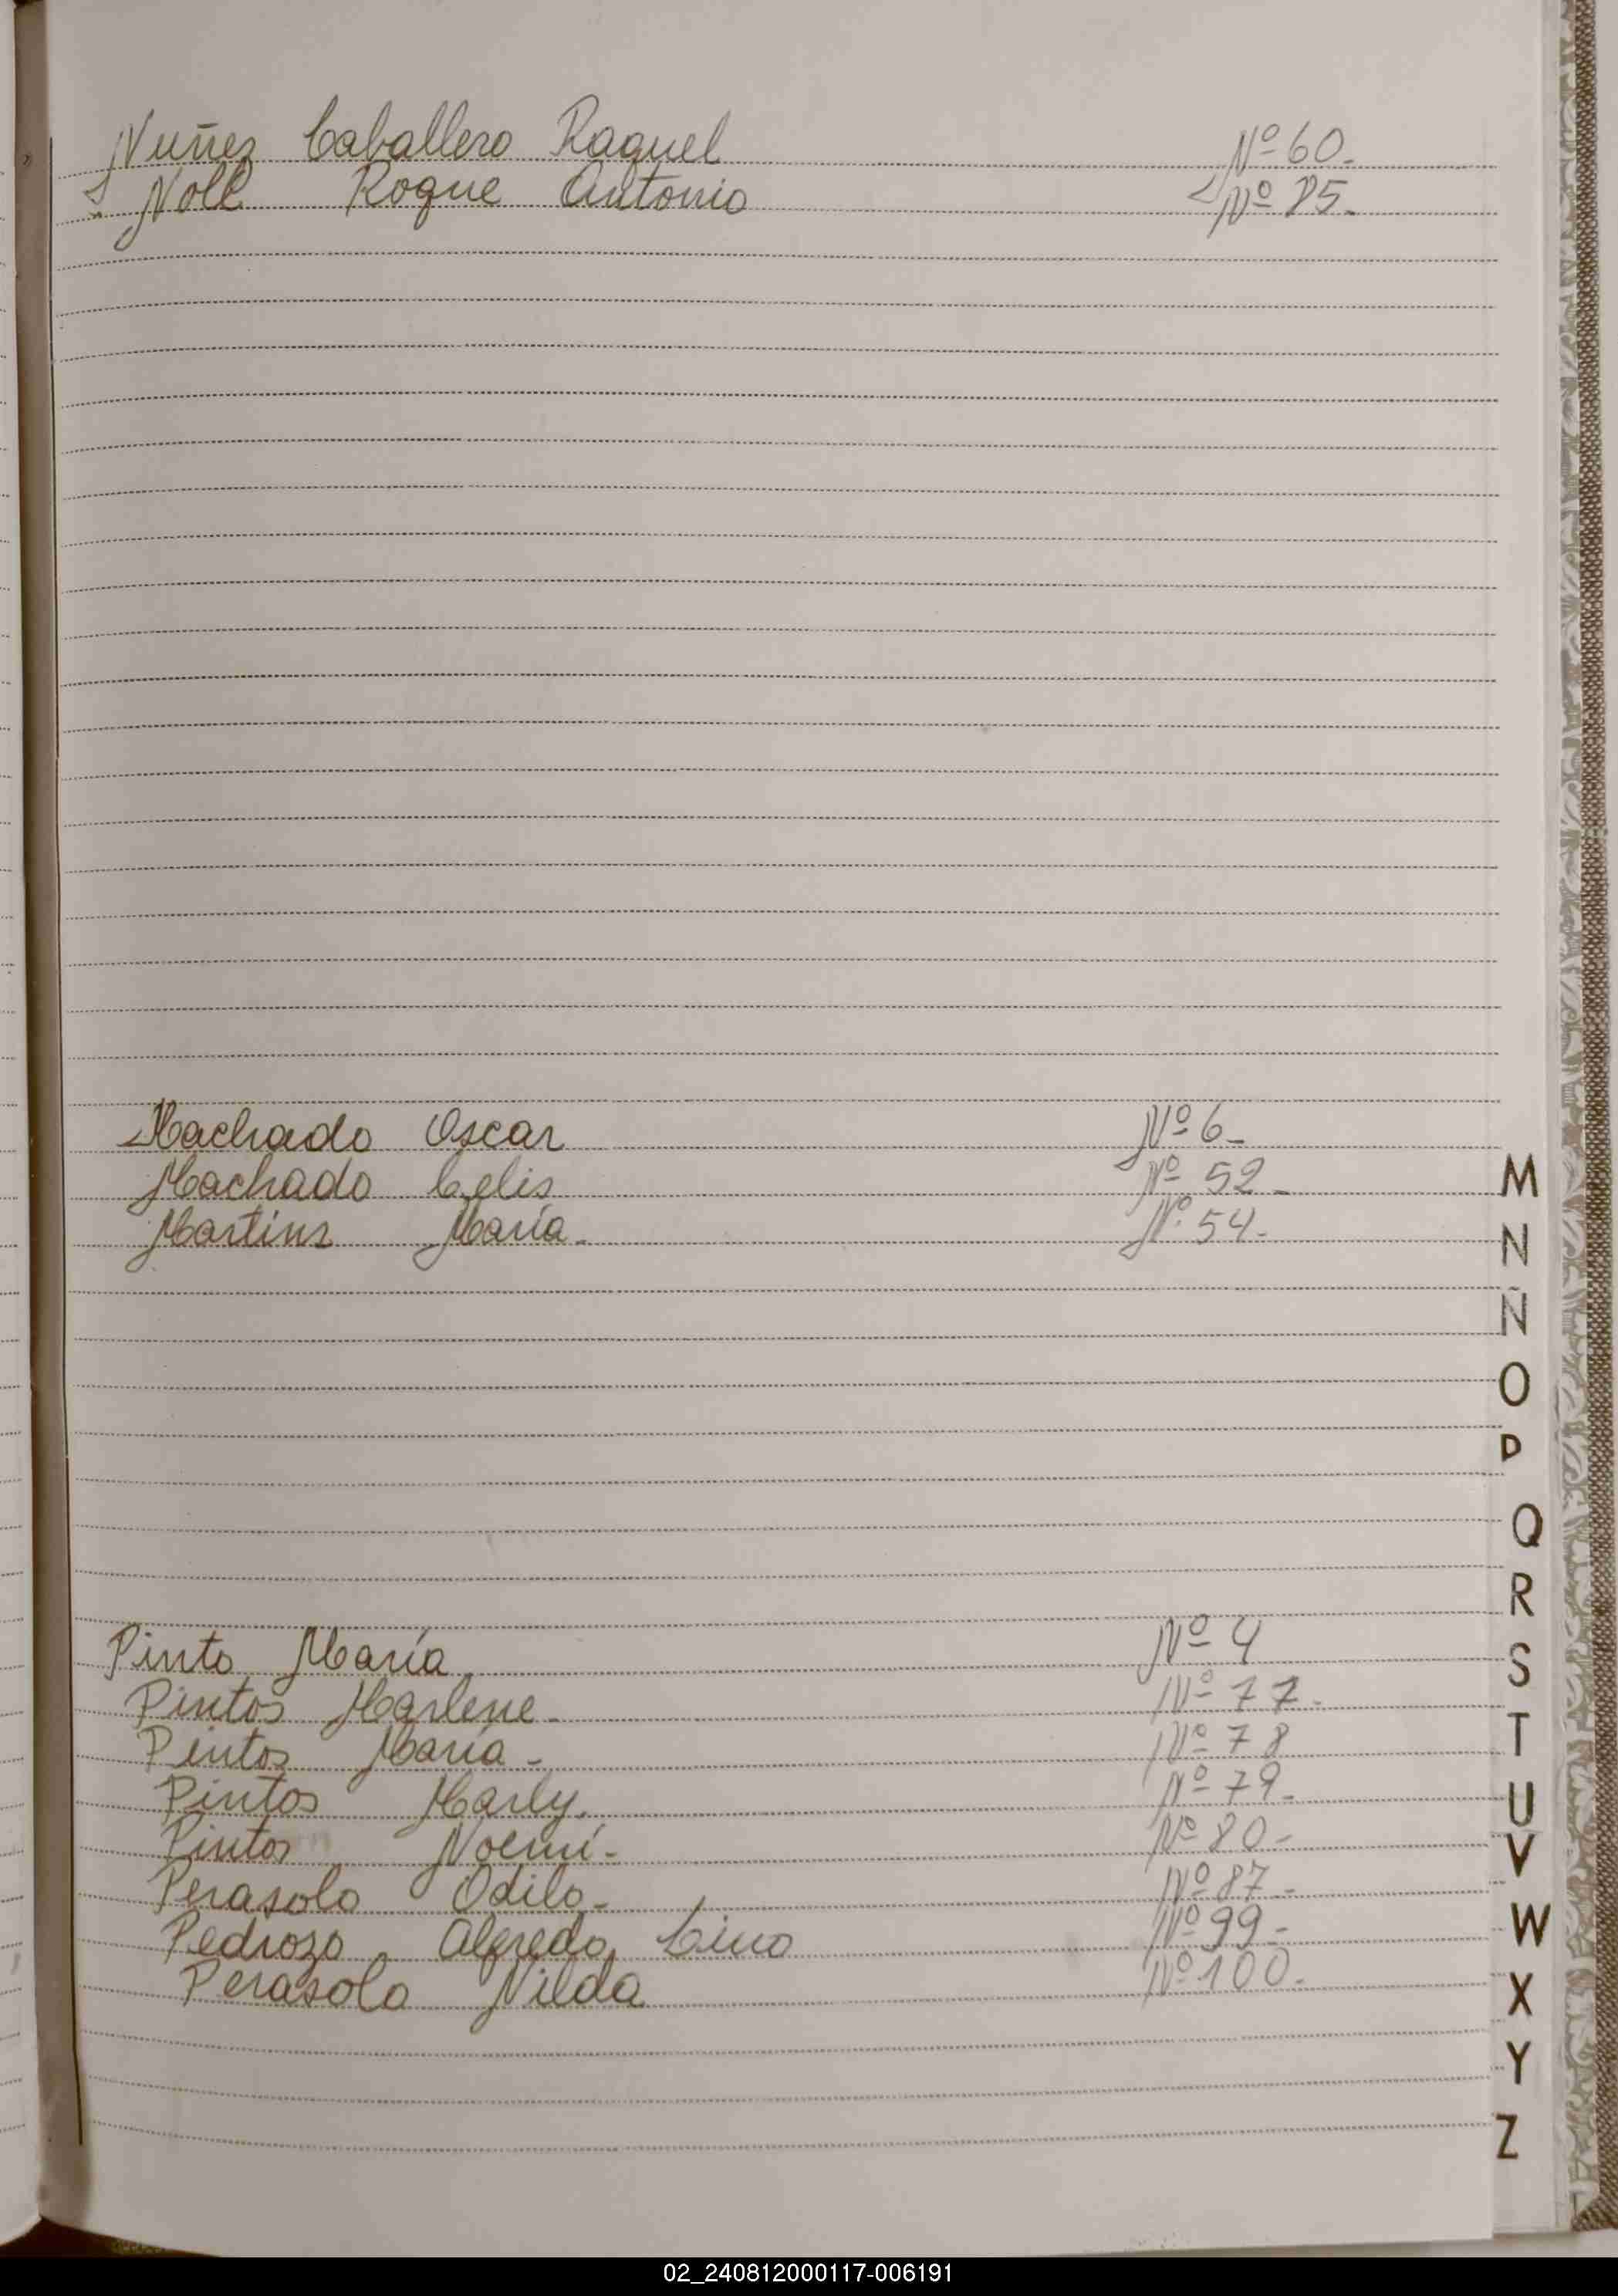 Nuñez Caballero Raquel Nº 60.
Noll Roque Antonio Nº 85.
Machado Oscar Nº 6_
Machado Celis Nº 52_
Martins María_ Nº 54_
M
N
Ñ
O
P
Q
R
S
T
U
V
W
X
Y
Z
Pinto María. Nº 4
Pintos Marlene_ Nº 77_
Pintos María_ Nº 78
Pintos Marly. Nº 79_
Pintos Noemí_ Nº 80_
Perasolo Odilo_ Nº 87_
Pedrozo Alfredo Lino Nº 99_
Perasolo Nilda Nº 100_
02_240812000117-006191